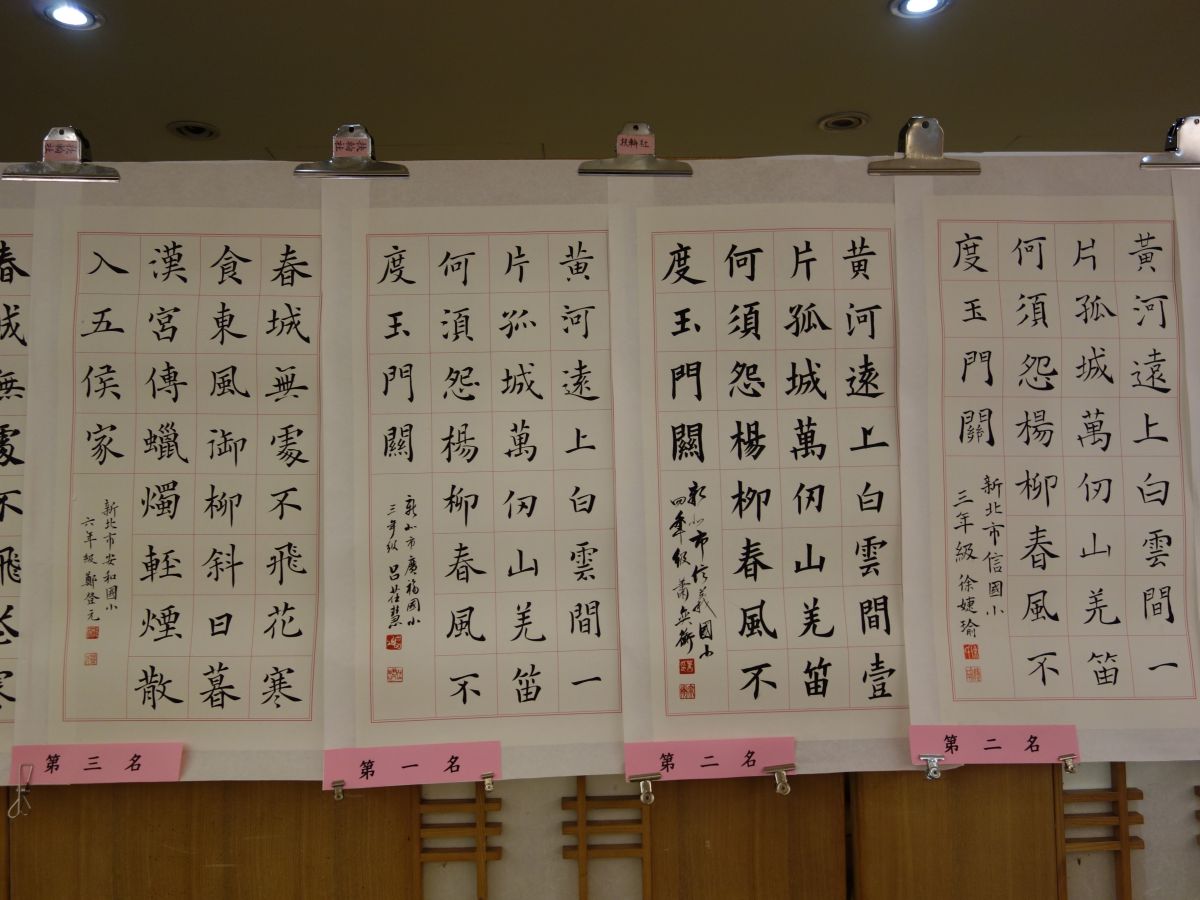 扶輪社
扶輪社
扶輪社
黃河遠上白雲間一
片孤城萬仞山羌笛
何須怨楊柳春風不
度玉門關
新北市信國小
三年級 徐婕瑜
第二名
黃河遠上白雲間壹
片孤城萬仞山羌笛
何須怨楊柳春風不
度玉門關
新北市信義國小
四年級蕭
第二名
黃河遠上白雲間一
片孤城萬仞山羌笛
何須怨楊柳春風不
度玉門關
新北市廣福國小
三年級 呂慧
第一名
春城無處不飛花寒
食東風御柳斜日暮
漢宮傳蠟燭輕煙散
入五侯家
新北市安和國小
六年級鄭登元
第三名
春城無處不飛花寒